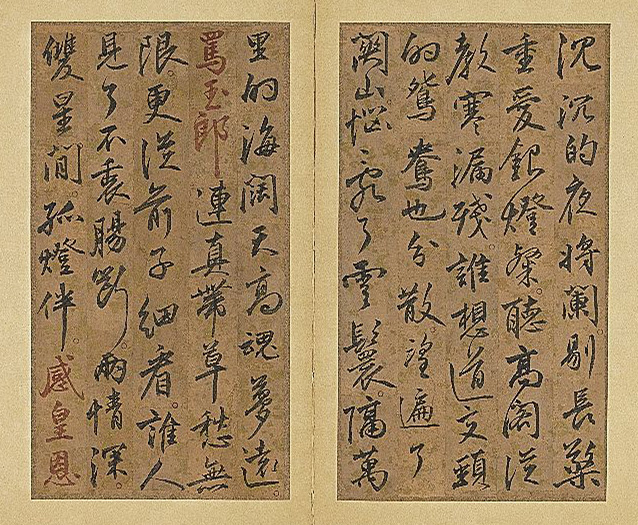 沉沉的夜將闌。剔長檠
重爱銀燈粲。聽高閣從
教寒漏殘。誰想道交頸
的鴛鴦也分散。望遍了
關山。惱亂了雲鬟。隔萬
里的海闊天高魂夢遠。
罵玉郎 連真帶草愁無
限。更從前子細看。誰人
見了不衷腸斷。兩情深
雙星間。孤燈伴。感皇恩